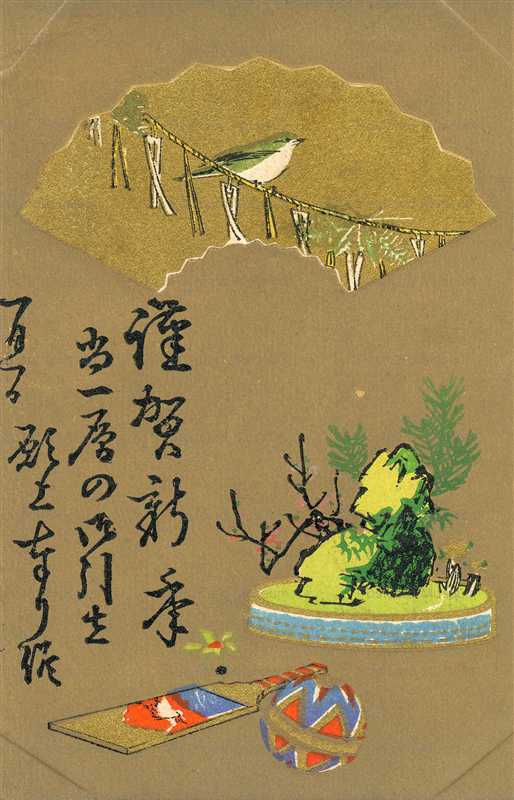 謹賀新年
尚一層の御引立
願上奉り候
一月一日